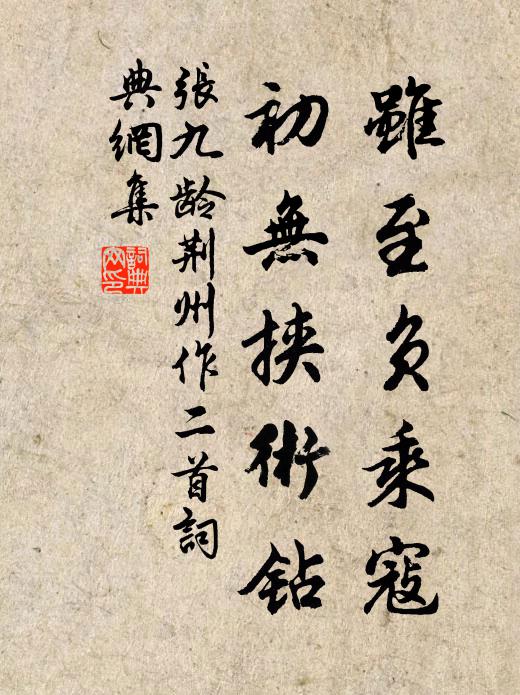 雖至負乘寇
初無挾術钻
張九龄荆州作二首詞
典網集
詞典